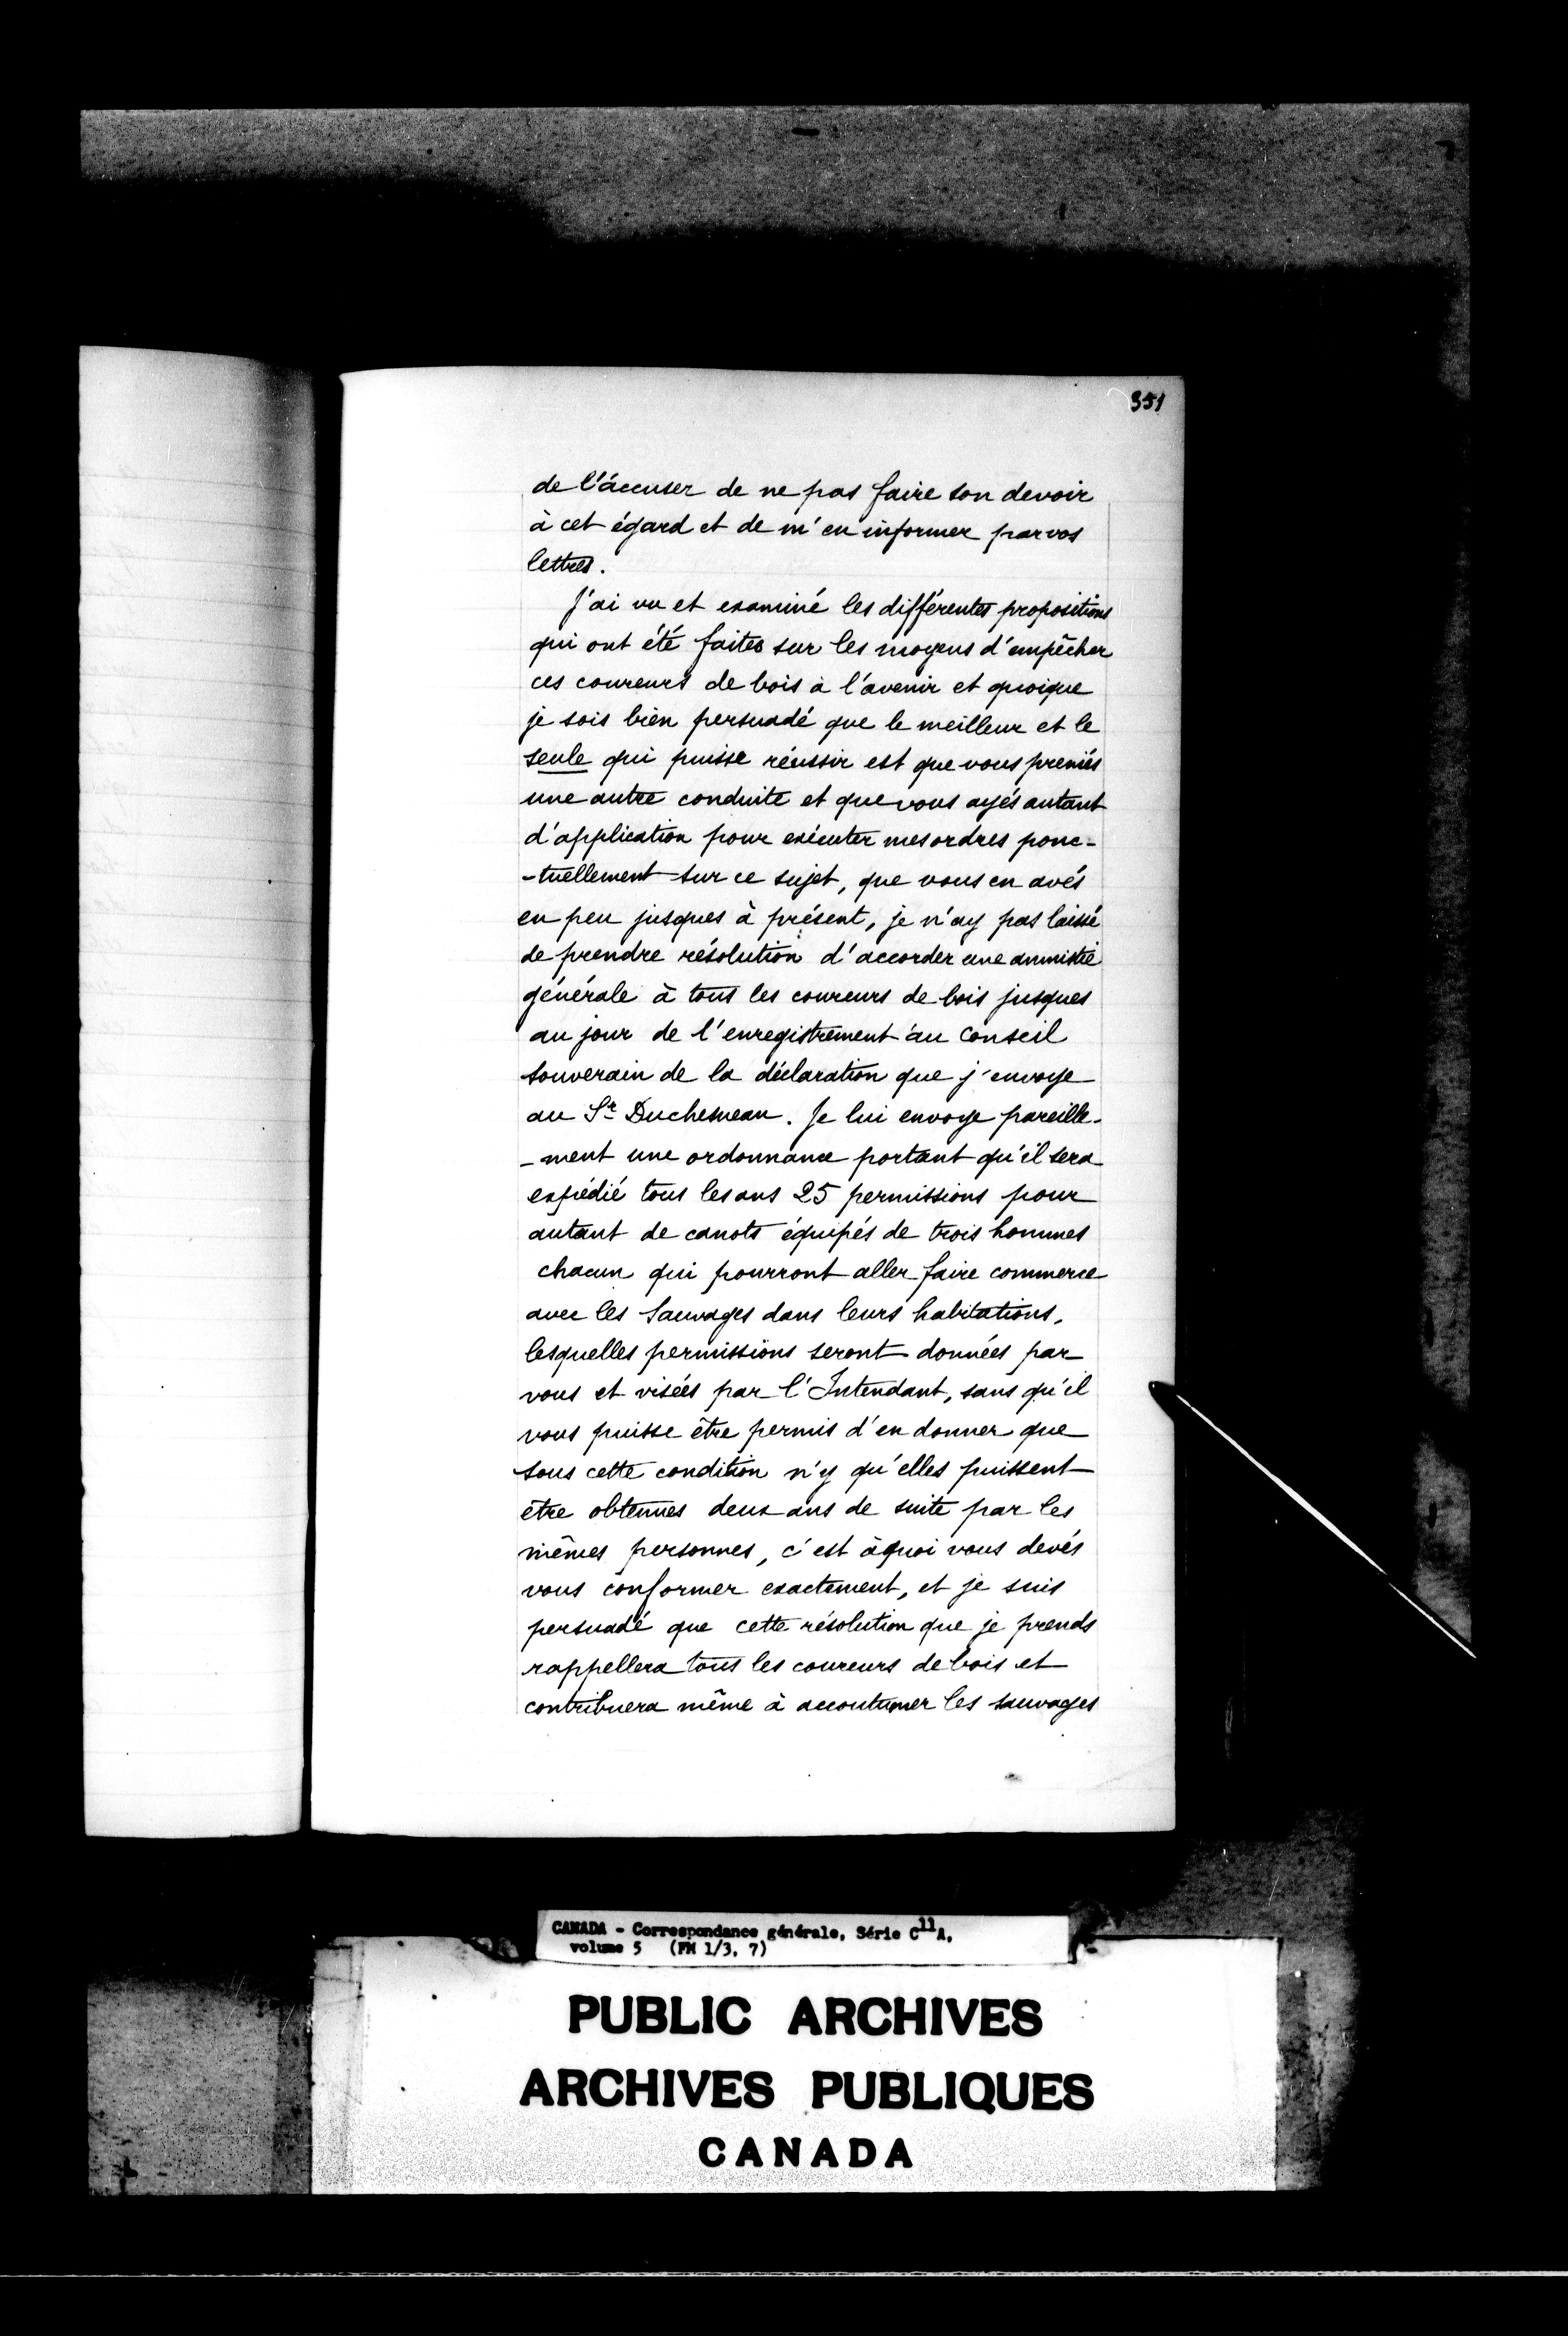 351
de l'áccuser de ne pas faire son devoir
à cet égard et de m'en informer par vos
lettres.
J'ai vu et examiné les différentes propositions
qui ont été faites sur les moyens d'empêcher
ces coureurs de bois à l'avenir et quoique
je sois bien persuadé que le meilleur et le
seule qui puisse réussir est que vous preniés
une autre conduite et que vous ayés autant
d'application pour exécuter mes ordres ponc-
-tuellement sur ce sujet, que vous en avés
eu peu jusques à présent, je n'ay pas laissé
de prendre résolution d'accorder une amnistie
générale à tous les coureurs de bois jusques
au jour de l'enregistrement au Conseil
souverain de la déclaration que j'envoye
au Sr Duchesneau. Je lui envoye pareille-
-ment une ordonnance portant qu'il sera
expédié tous les ans 25 permissions pour
autant de canots équipés de trois hommes
chacun qui pourront aller faire commerce
avec les Sauvages dans leurs habitations,
lesquelles permissions seront données par
vous et visées par l'Intendant, sans qu'il
vous puisse être permis d'en donner que
sous cette condition n'y qu'elles puissent
être obtenues deux ans de suite par les
mêmes personnes, c'est à quoi vous devés
vous conformer exactement, et je suis
persuadé que cette résolution que je prends
rappellera tous les coureurs de bois et
contribuera même à accoutumer les sauvages
CANADA - Correspondance générale, Série C11A,
volume 5 (FM 1/3, 7)
PUBLIC ARCHIVES
ARCHIVES PUBLIQUES
CANADA